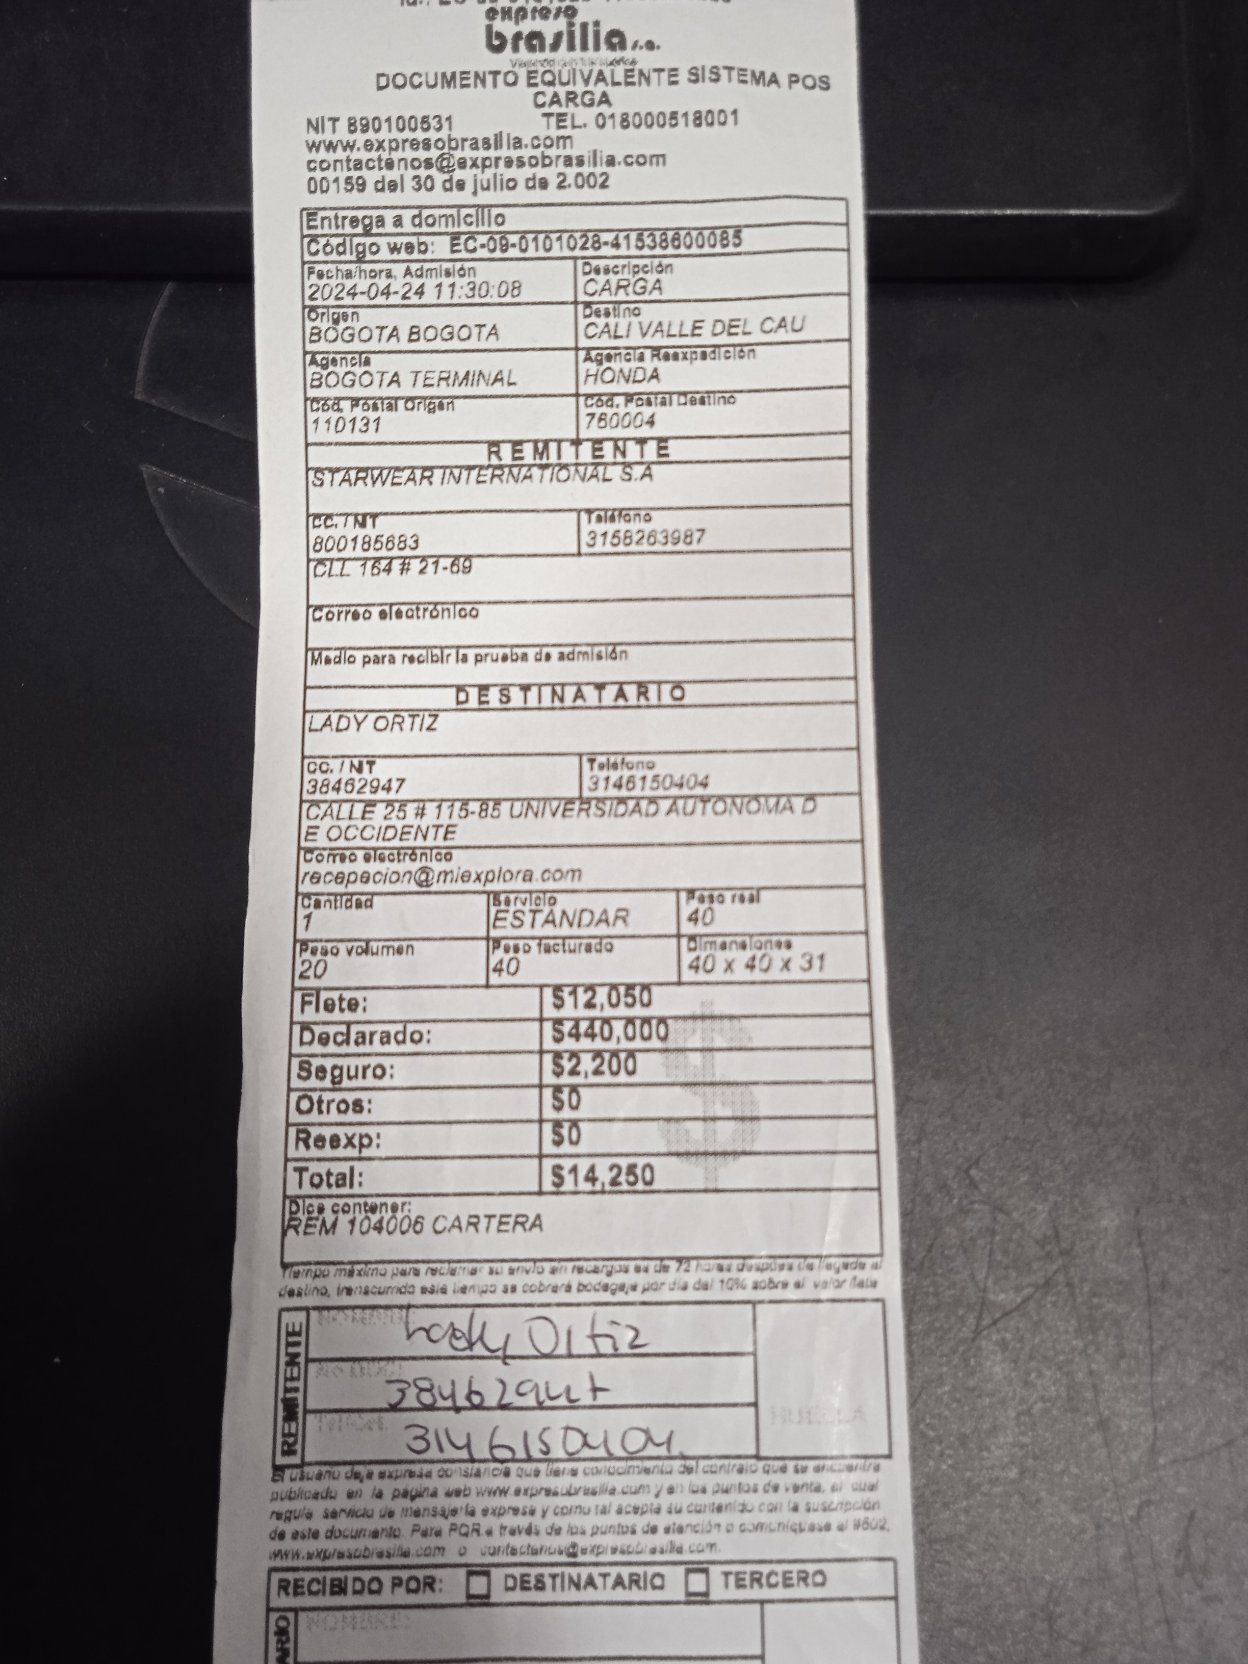 expreso
brasilia s.a.
DOCUMENTO EQUIVALENTE SISTEMA POS
CARGA
NIT 890100531 TEL. 018000518001
www.expresobrasilia.com
contactenos@expresobrasilia.com
00159 del 30 de julio de 2.002
Entrega a domicilio
Código web: EC-09-0101028-41538600085
Fecha/hora, Admisión Descripción
2024-04-24 11:30:08 CARGA
Origen Destino
BOGOTA BOGOTA CALI VALLE DEL CAU
Agencia Agencia Reexpedición
BOGOTA TERMINAL HONDA
Cód. Postal Origen Cód. Postal Destino
110131 760004
REMITENTE
STARWEAR INTERNATIONAL S.A
CC. / NIT Teléfono
800185683 3158263987
CLL 164 # 21-69
Correo electrónico
Medio para recibir la prueba de admisión
DESTINATARIO
LADY ORTIZ
CC. / NIT Teléfono
38462947 3146150404
CALLE 25 # 115-85 UNIVERSIDAD AUTONOMA D
E OCCIDENTE
Correo electrónico
recepecion@miexplora.com
Cantidad Servicio Peso real
1 ESTANDAR 40
Peso volumen Peso facturado Dimensiones
20 40 40 x 40 x 31
Flete: $12,050
Declarado: $440,000
Seguro: $2,200
Otros: $0
Reexp: $0
Total: $14,250
$
Dice contener:
REM 104006 CARTERA
Tiempo máximo para reclamar su envío sin recargos es de 72 horas después de llegada al
destino, transcurrido este tiempo se cobrará bodegaje por día del 10% sobre el valor flete
REMITENTE
NOMBRE:
Lady Ortiz
No DOC:
38462947
Tel/Cel:
3146150404
HUELLA
El usuario deja expresa constancia que tiene conocimiento del contrato que se encuentra
publicado en la página web www.expresobrasilia.com y en los puntos de venta, el cual
regula servicio de mensajería expresa y como tal acepta su contenido con la suscripción
de este documento. Para PQR a través de los puntos de atención o comuníquese al #602,
www.expresobrasilia.com o contactenos@expresobrasilia.com.
RECIBIDO POR: DESTINATARIO TERCERO
NOMBRE: